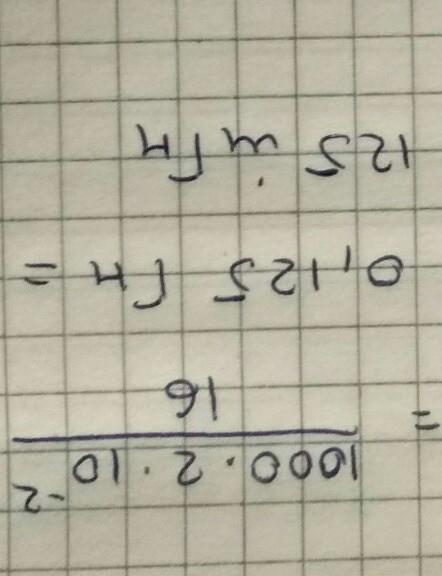 = 1000 · 2 · 10⁻²
16
0,125 Гн =
125 mГн